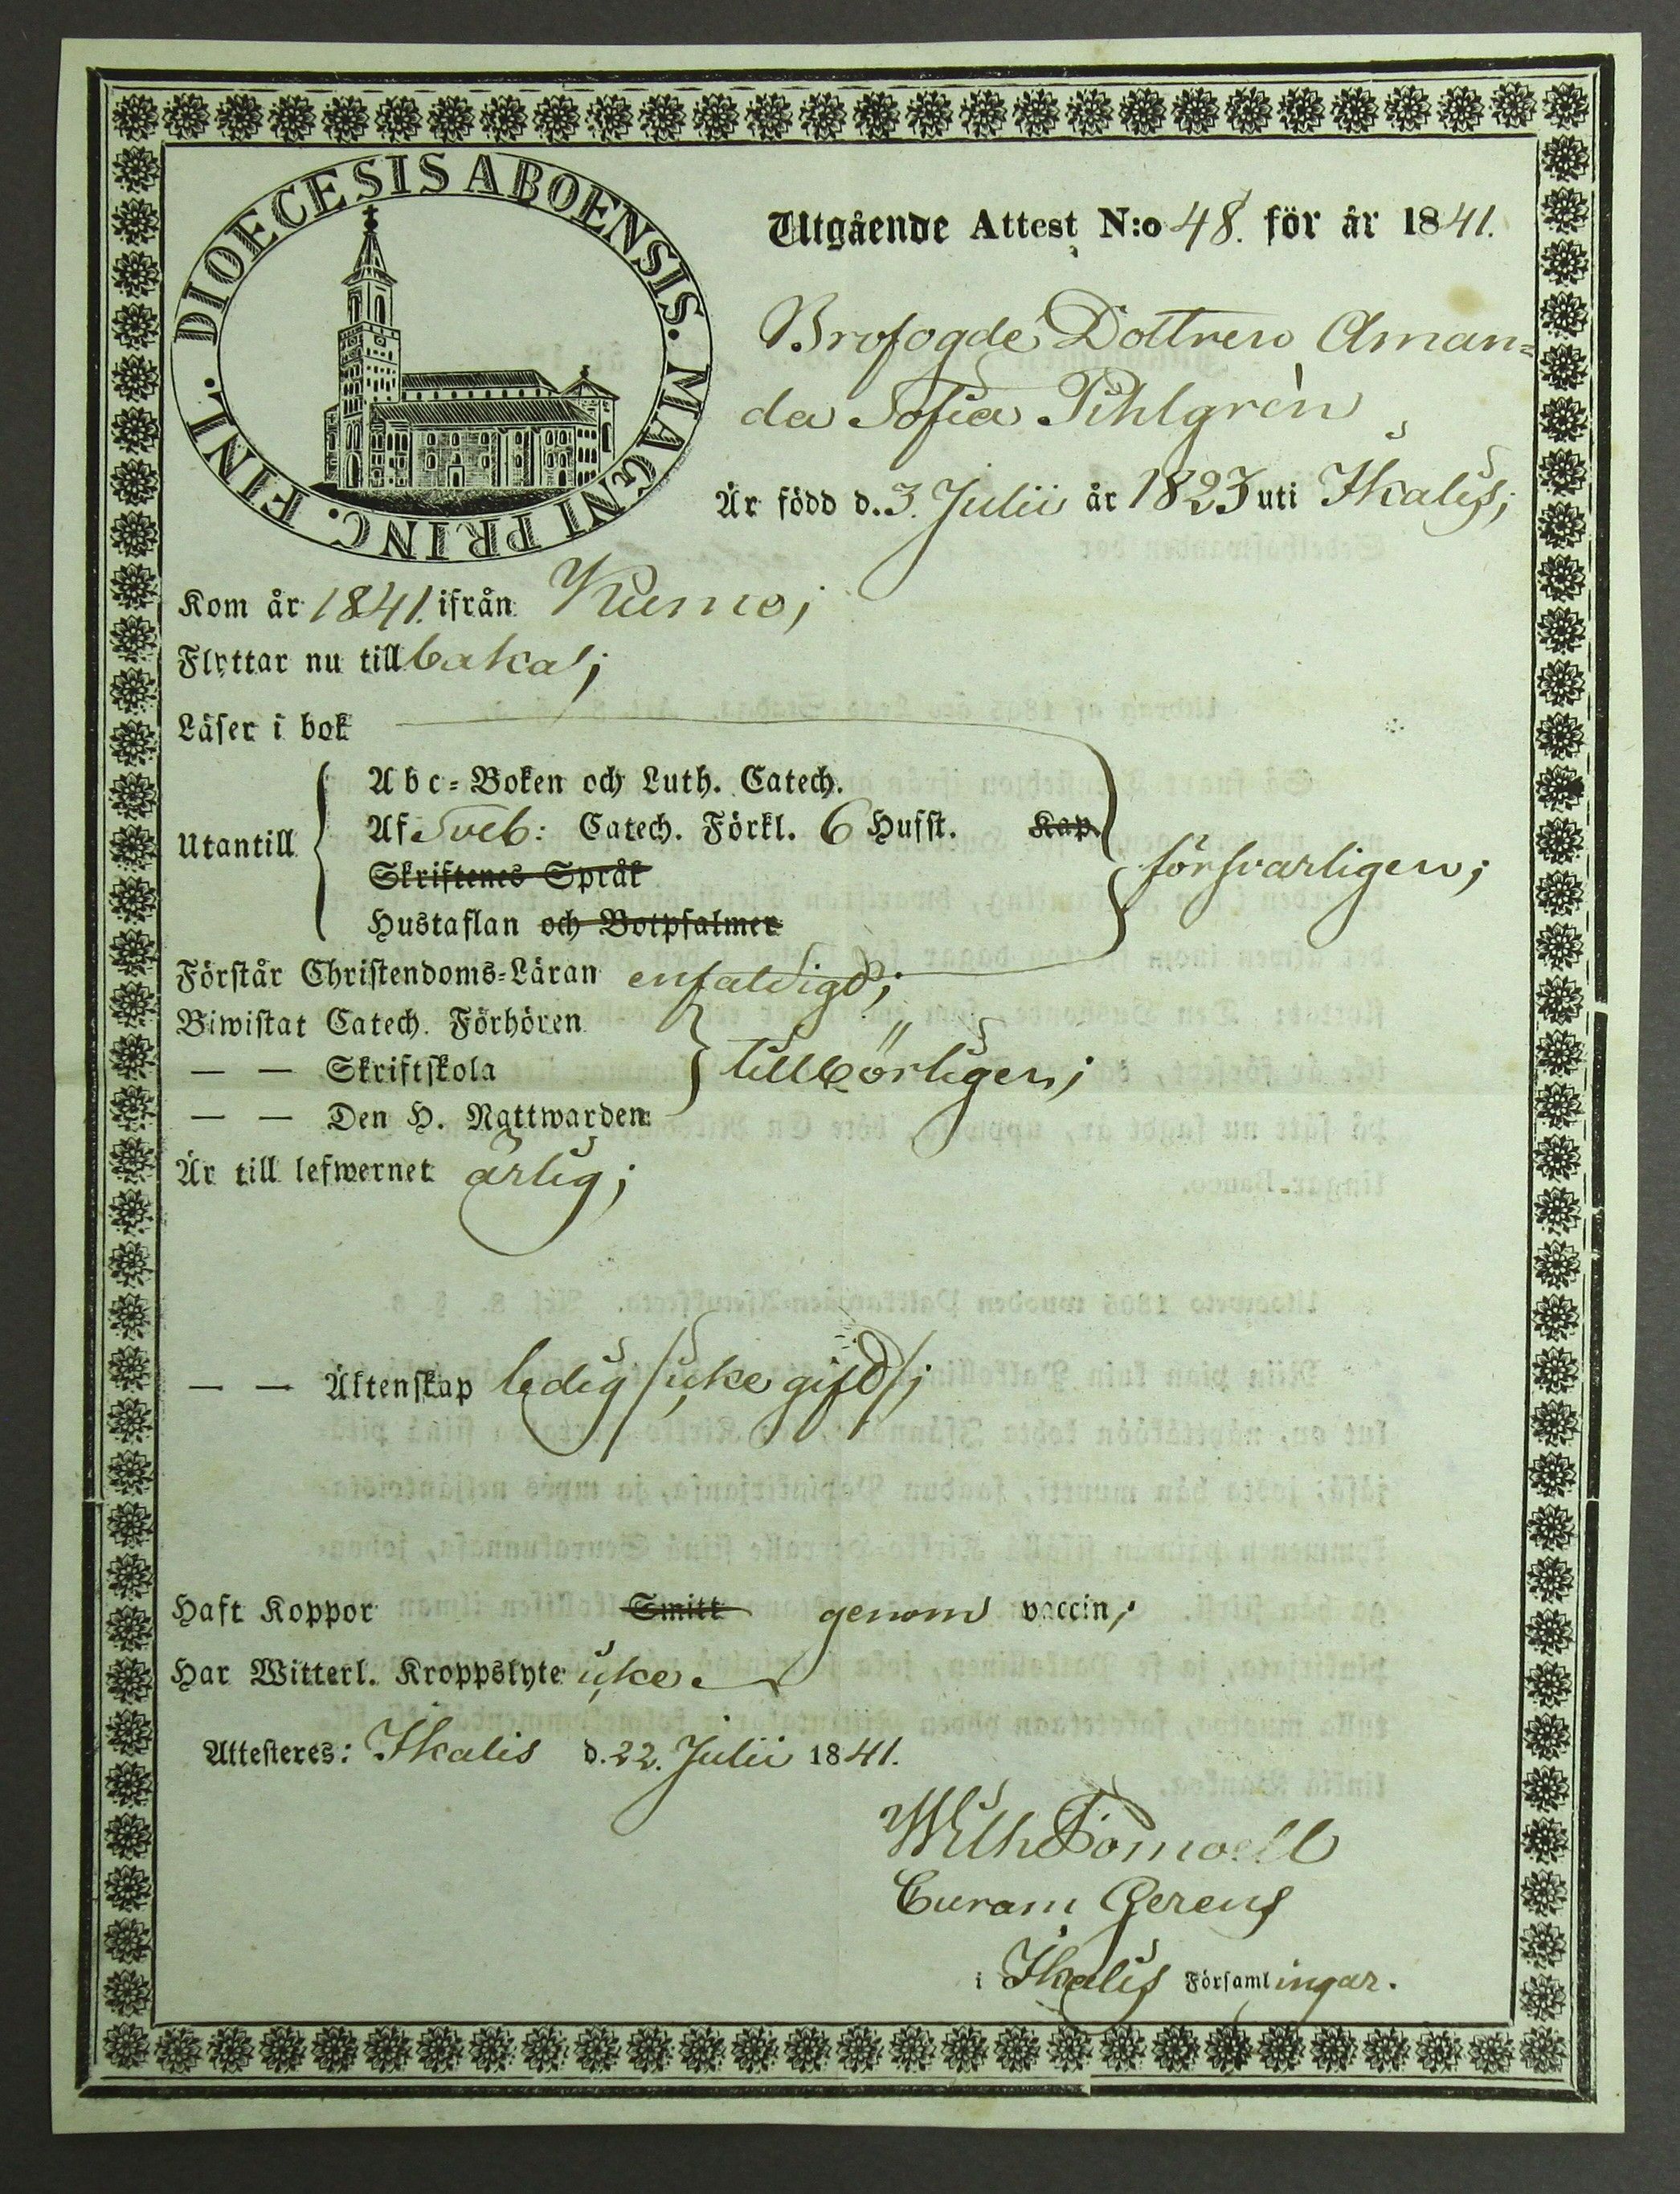 DIOECESIS ABOENSIS. MAGNI PRINC. FINL.
Utgående Attest N:o 48. för år 1841.
Brofogde Dottren Aman=
da Sofia Pihlgrèn
Är född d. 3. Julii år 1823 uti Ikalis;
Kom år 1841. ifrån Kumo;
Flyttar nu tillbaka;
Läser i bok
Utantill
Abc=Boken och Luth. Catech.
Af Sveb: Catech. Förkl. 6 Hufst. Kap.
försvarligen;
Skriftenes Språk
Hustaflan och Botpsalmer
Förstår Christendoms=Läran enfaldigt;
Biwistat Catech. Förhören
— — Skriftskola
tillbörligen;
— — Den H. Nattwarden
Är till lefwernet ärlig;
— — Äktenskap ledig /icke gift/;
Haft Koppor Smitt genom vaccin;
Har Witterl. Kroppslyte icke
Attesteres: Ikalis d. 22. Julii 1841.
Wilh
Curam Gerens
i Ikalis Församlingar.